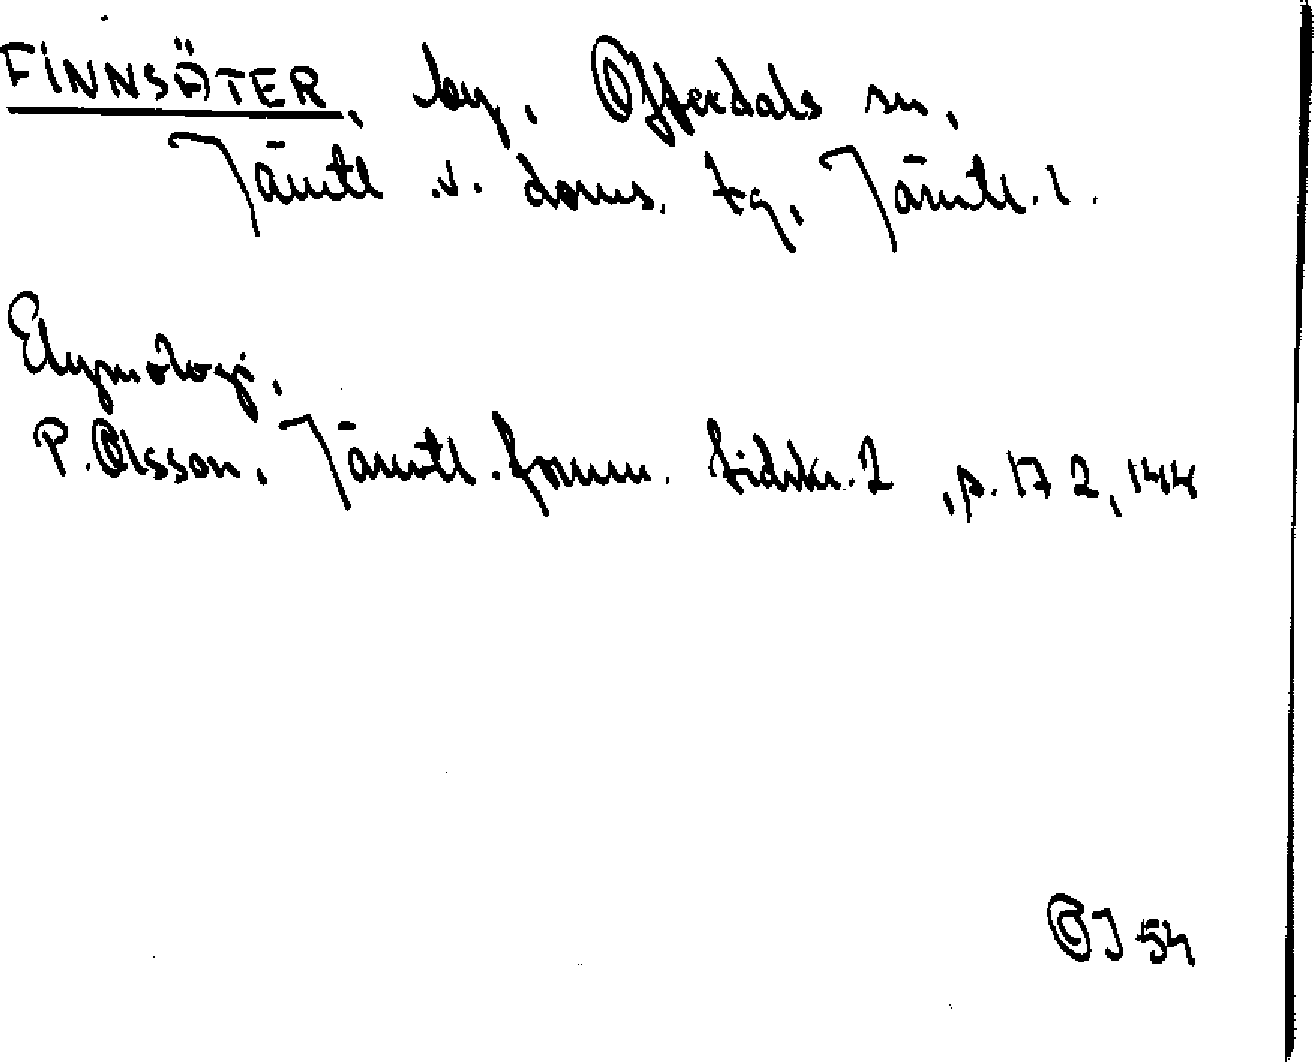 FINNSÄTER, by, Offerdals sn,
Jämtl. v. doms. tg, Jämtl. l.
Etymologi.
P. Olsson, Jämtl. fornm. tidskr. 2, p. 172, 144
OJ 54